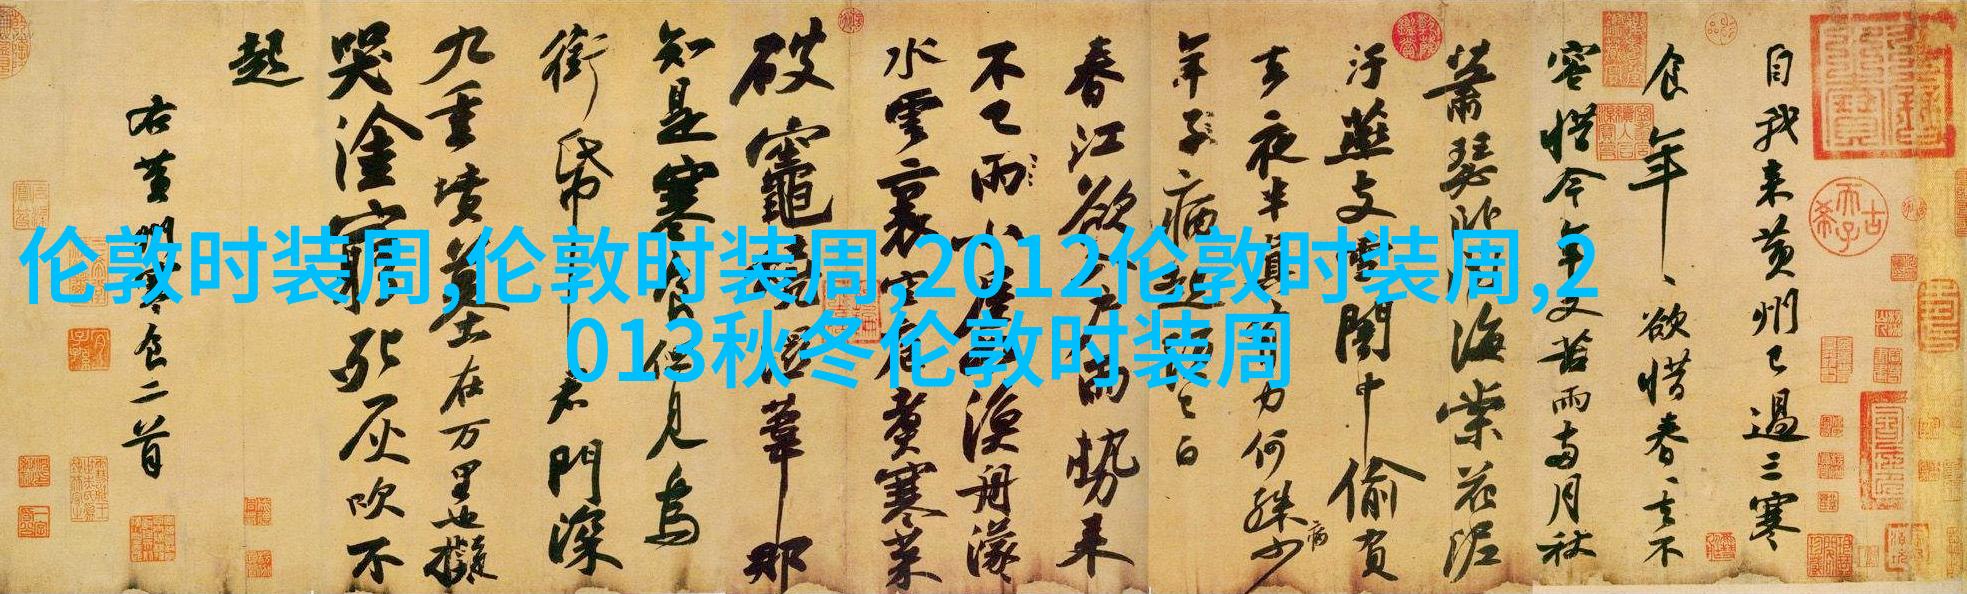 伦敦时装周,伦敦时装周,2012伦敦时装周,2
013秋冬伦敦时装周
自我来黄州已過三寒
食年〻欲惜春〻去不
容惜今年又苦雨兩月秋
蕭瑟卧聞海棠花泥
汙燕支雪闇中偷負
去夜半真有力何殊少
病
年子病起頭已白
春江欲入户雨勢来
不已雨小屋如漁舟濛〻
水雲裏空庖煮寒菜
破竈燒濕葦那
知是寒食但見烏
銜帋君門深
九重墳墓在万里也擬
哭塗窮死灰吹不
起
右黄州寒食二首